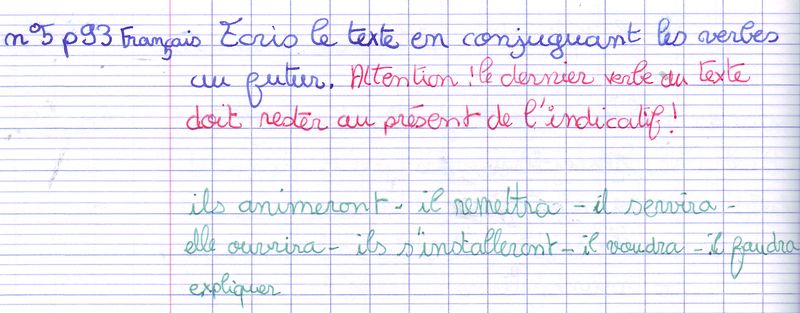 n°5 p93 Français Ecris le texte en conjuguant les verbes
au futur. Attention ! le dernier verbe du texte
doit rester au présent de l'indicatif !
ils animeront - il remettra - il servira -
elle ouvrira - ils s'installeront - il voudra - il faudra
expliquer